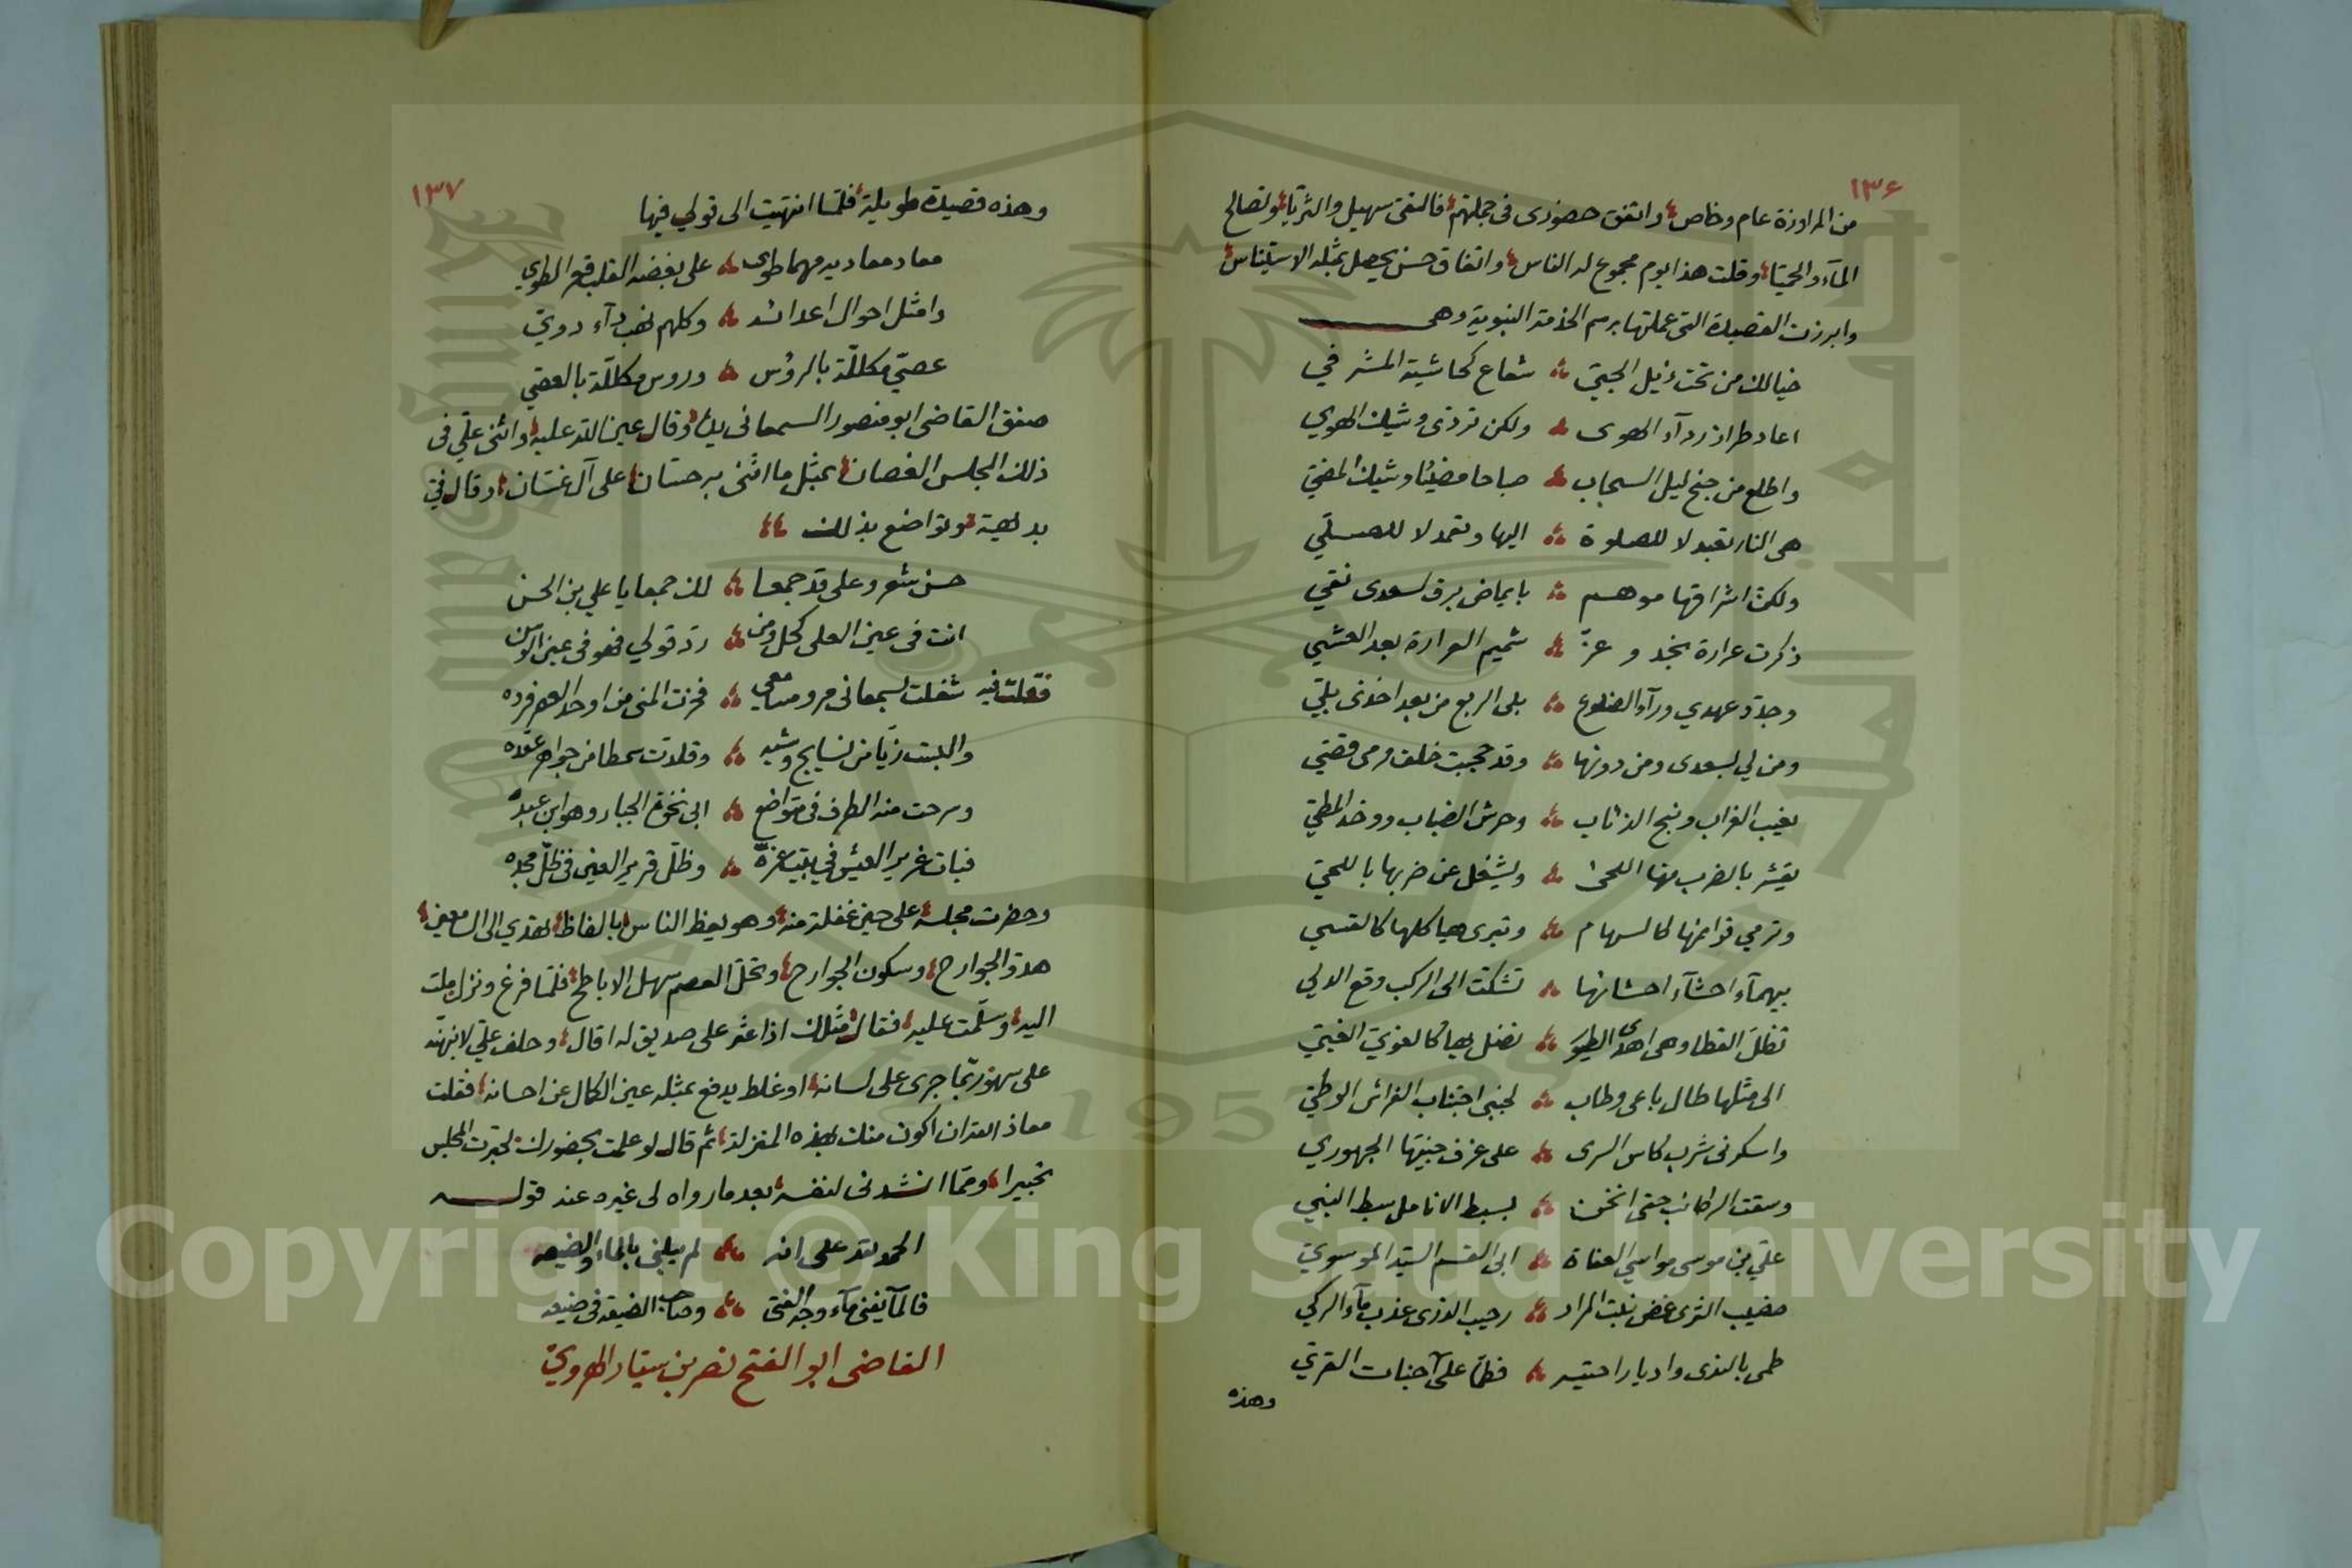 ١٣٦
من المراوزة عام وخاص، واتفق حضوري في جملتهم، فالتقى سهيل والثريا، وتصالح
الماء والحميا، وقلت هذا يوم مجموع له الناس، واتفاق حسن يحصل بمثله الاستيناس،
وابرزت القصيدة التي عملتها برسم الخدمة النبوية وهي
خيالك من تحت ذيل الحبي ؞ شعاع كحاشية المشرفي
اعاد طراز رداء الهوى ؞ ولكن تردى وشيك الهوي
واطلع من جنح ليل السحاب ؞ صباحا مضيئا وشيك المضي
هي النار تعبد لا للصلوة ؞ اليها وتعمد لا للصلي
ولكن اشراقها موهم ؞ بايماض برق لسعدى نقي
ذكرت عرارة نجد وعز ؞ شميم العرارة بعد العشي
وجدد عهدي وراء الضلوع ؞ بلى الربع من بعد اخدى بلي
ومن لي بسعدى ومن دونها ؞ وقد حجبت خلف رمي قصي
نعيب الغراب ونبح الذئاب ؞ وحرش الضباب ووخد المطي
يقشر بالضرب منها اللحى ؞ ويشغل عن ضربها باللحي
وترمي قوائمها كالسهام ؞ وتبرى هياكلها كالقسي
بيهماء احشاء احشائها ؞ تشكت الى الركب وقع الدلي
تظل القطا وهي اهدى الطيور ؞ تضل بها كالغوي الغبي
الى مثلها طال باعي وطاب ؞ لجنبي اجتناب الفراش الوطي
واسكرني شرب كاس السرى ؞ على عزف جنيتها الجهوري
وسقت الركائب حتى انخن ؞ بسبط الانامل سبط النبي
علي بن موسى مواسي العفاة ؞ ابي القسم السيد الموسوي
خضيب الثرى غض نبت المراد ؞ رحيب الذرى عذب ماء الركي
طمى بالندى واديا راحتيه ؞ فطما على جنبات القري
وهذه
١٣٧
وهذه قصيدة طويلة، فلما انتهيت الى قولي فيها
معاد معاديه مهما طوى ؞ على بغضه القلب قعر الطوي
وامثل احوال اعدائه ؞ وكلهم نهب داء دوي
عصي مكللة بالرؤس ؞ وروس مكللة بالعصي
صفق القاضي ابو منصور السمعاني يديه، وقال عين الله عليه، واثنى علي في
ذلك المجلس الغصان، بمثل ما اثنى به حسان، على آل غسان، وقال في
بديهية، وتواضع بذلك
حسن شعر وعلى قد جمعا ؞ لك جمعا يا علي بن الحسن
انت في عين العلى كحل ومن ؞ رد قولي فهو في عين الوسن
فقلت فيه شغلت بسمعاني مرو مسامعي ؞ فحزت المنى من اوحد العصر فرده
والبست زيا من نسايج وشيه ؞ وقلدت سمطا من جواهر عقده
وسرحت منه الطرف في متواضع ؞ ابي نخوة الجبار وهو ابن عبده
فبات غرير العيش في بيت عزه ؞ وظل قرير العين في ظل مجده
وحضرت مجلسه، على حين غفلة منه، وهو يعظ الناس، بالفاظ، تهدي الى السامعين،
هدو الجوارح، وسكون الجوارح، وتحل العصم سهل الاباطح، فلما فرغ ونزل ملت
اليه، وسلمت عليه، فقال مثلك اذا عثر على صديق له اقال، وحلف علي لانبهنه
على سهو ربما جرى على لسانه، او غلط يدفع بمثله عين الكمال عن احسانه، فقلت
معاذ الله ان اكون منك بهذه المنزلة، ثم قال لو علمت بحضورك، لحبرت المجلس
تحبيرا، ومما انشدني لنفسه، بعد ما رواه لي غيره عند قوله
الحمد لله على انه ؞ لم يبلني بالماء والضيعه
فالماء يفني ماء وجه الفتى ؞ وصاحب الضيعة في ضيعه
القاضي ابو الفتح نصر بن سيار الهروي
Copyright © King Saud University
1957